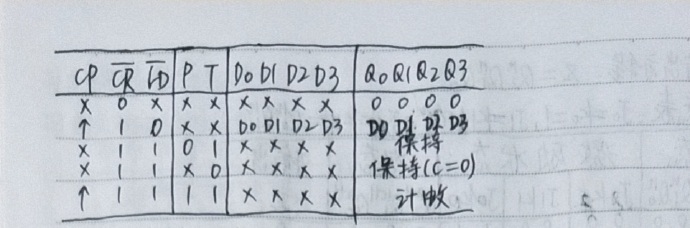 CP C̅R̅ L̅D̅ P T D0 D1 D2 D3 Q0 Q1 Q2 Q3
× 0 × × × × × × × 0 0 0 0
↑ 1 0 × × D0 D1 D2 D3 D0 D1 D2 D3
× 1 1 0 1 × × × × 保持
× 1 1 × 0 × × × × 保持(C=0)
↑ 1 1 1 1 × × × × 计数